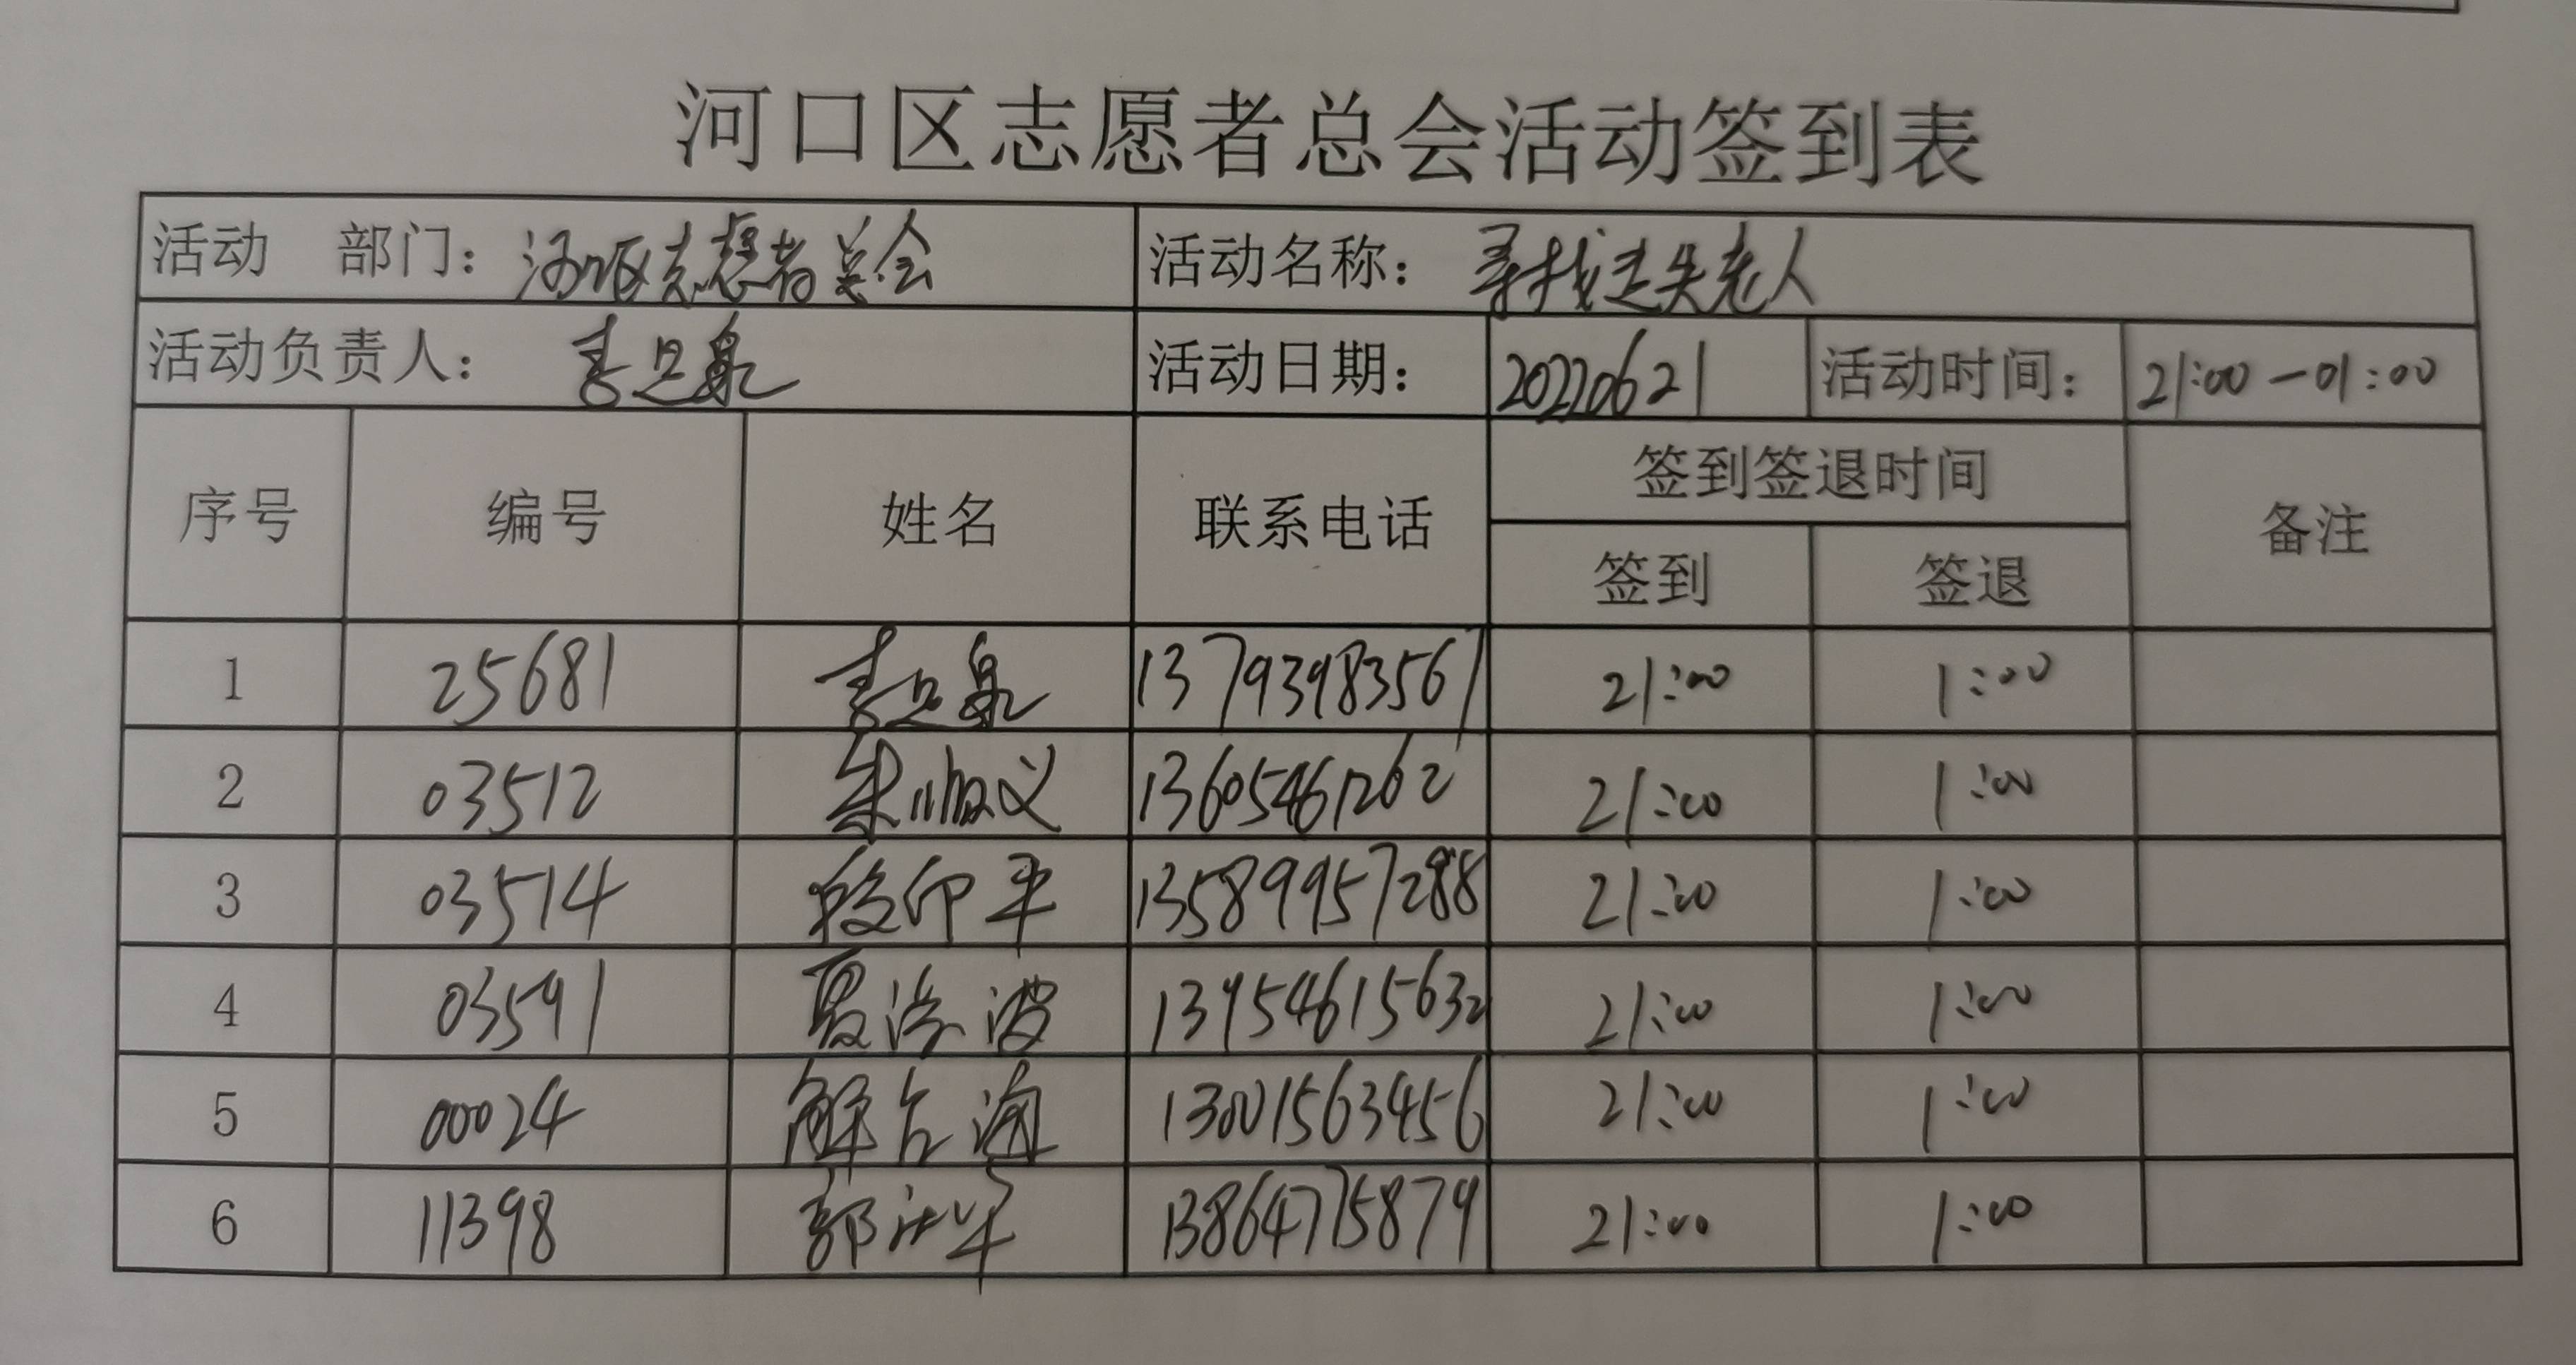 河口区志愿者总会活动签到表
活动 部门：河口区志愿者总会 活动名称：寻找走失老人
活动负责人： 活动日期：20220621 活动时间：21:00-01:00
序号 编号 姓名 联系电话 签到签退时间 备注
签到 签退
1 25681 13793983561 21:00 1:00
2 03512 朱顺义 13605461262 21:00 1:00
3 03514 段印平 13589957288 21:00 1:00
4 03591 夏洪波 13954615632 21:00 1:00
5 00024 解 海 13001563456 21:00 1:00
6 11398 郭 13864775879 21:00 1:00